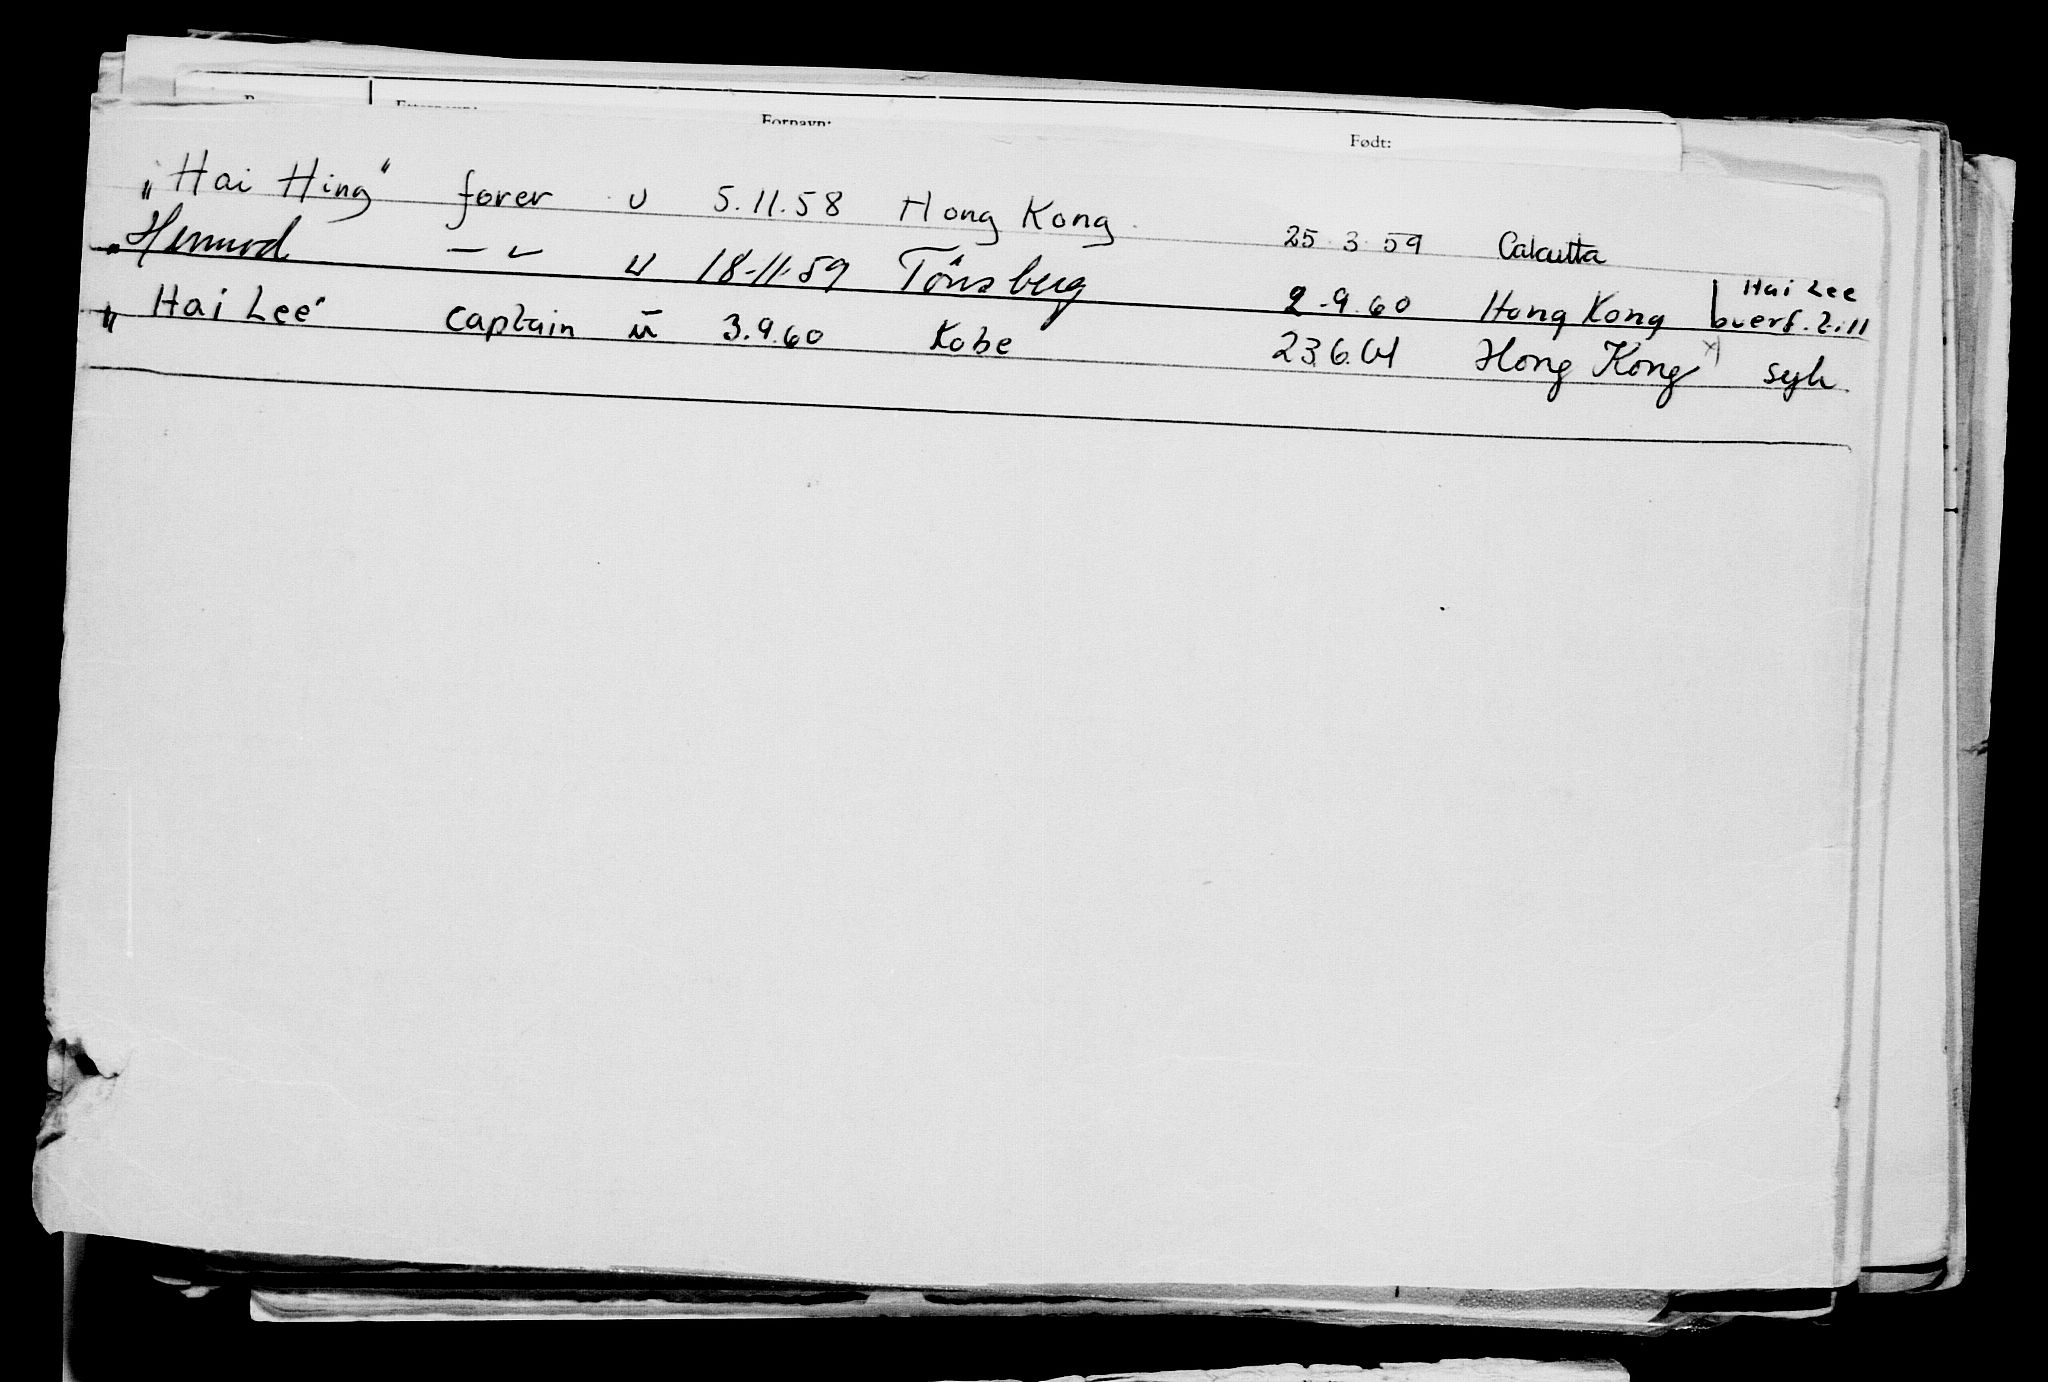 Etternavn: Fornavn: Født:
„Hai Hing" fører u 5.11.58 Hong Kong 25.3.59 Calcutta
" — " — u 18-11-59 Tönsberg 2-9.60 Hong Kong Hai Lee overf. til
„Hai Lee" captain u 3.9.60 Kobe 23.6.61 Hong Kong x) syk